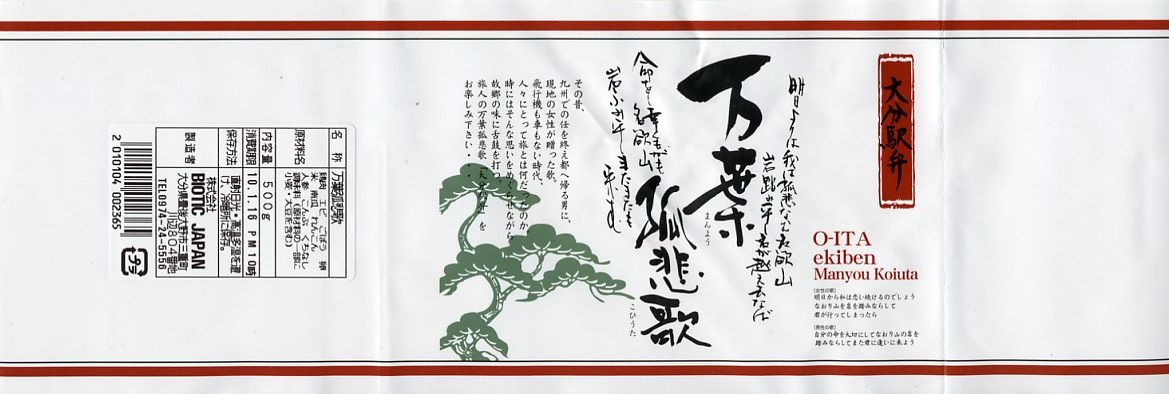 大分駅弁
O-ITA
ekiben
Manyou Koiuta
(女性の歌)
明日から私は恋い続けるのでしょう
なおり山を岩を踏みならして
君が行ってしまったら
(男性の歌)
自分の命を大切にしてなおり山の岩を
踏みならしてまた君に逢いに来よう
明日よりは我は孤悲なむ名欲山
岩踏平し君が越え去なば
万葉
まんよう
孤悲歌
こひうた
命をし
名欲山
岩ふみ平しまたまたも来む
その昔、
九州での任を終え都へ帰る男に、
現地の女性が贈った歌。
飛行機も車もない時代、
人々にとって旅とは何だったのか
時にはそんな思いをめぐらせながら
故郷の味に舌鼓を打つ。
旅人の万葉孤悲歌
を
お楽しみ下さい・・
名 称 万葉孤悲歌
原材料名
鶏肉 エビ ごぼう 卵
米 人参 南瓜 れんこん
こんぶ くちなし
調味料 (原材料の一部に
小麦・大豆を含む)
内容量 500g
消費期限 10.1.16 PM 10時
保存方法 直射日光・高温多湿を避
け、冷暗所に保存。
製造者 株式会社
BIOTIC JAPAN
大分県豊後大野市三重町
宮野804番地
TEL0974-24-5556
2 010104 002365